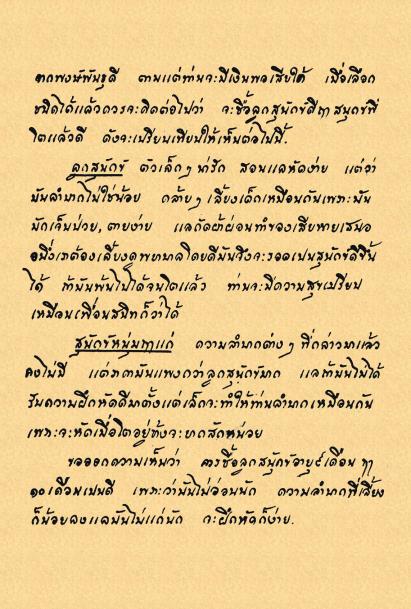 จากพงษ์พันธุ์ดี ตามแต่ท่านจะมีเงินพอเสียได้ เมื่อเลือก
ชนิดได้แล้วควรจะคิดต่อไปว่า จะซื้อลูกสุนัขดีฤๅสุนัขที่
โตแล้วดี ดังจะเปรียบเทียบให้เห็นต่อไปนี้.
ลูกสุนัข ตัวเล็กๆ น่ารัก สอนแลหัดง่าย แต่ว่า
มันลำบากไม่ใช่น้อย คล้ายๆ เลี้ยงเด็กเหมือนกันเพราะมัน
มักเจ็บป่วย, ตายง่าย แลกัดผ้าผ่อนทำของเสียหายเสมอ
อนึ่งเราต้องเลี้ยงดูพยาบาลโดยดีมันจึงจะรอดเปนสุนัขดีขึ้น
ได้ ถ้ามันพ้นไปได้จนโตแล้ว ท่านจะมีความสุขเปรียบ
เหมือนเพื่อนสนิทก็ว่าได้
สุนัขหนุ่มฤๅแก่ ความลำบากต่างๆ ที่กล่าวมาแล้ว
คงไม่มี แต่ราคามันแพงกว่าลูกสุนัขมาก แลถ้ามันไม่ได้
รับความฝึกหัดดีมาตั้งแต่เล็กจะทำให้ท่านลำบากเหมือนกัน
เพราะจะหัดเมื่อโตอยู่ข้างจะยากสักหน่อย
ขอออกความเห็นว่า ควรซื้อลูกสุนัขอายุ ๙ เดือน ฤๅ
๑๐ เดือนเปนดี เพราะว่ามันไม่อ่อนนัก ความลำบากที่เลี้ยง
ก็น้อยลงแลมันไม่แก่นัก จะฝึกหัดก็ง่าย.